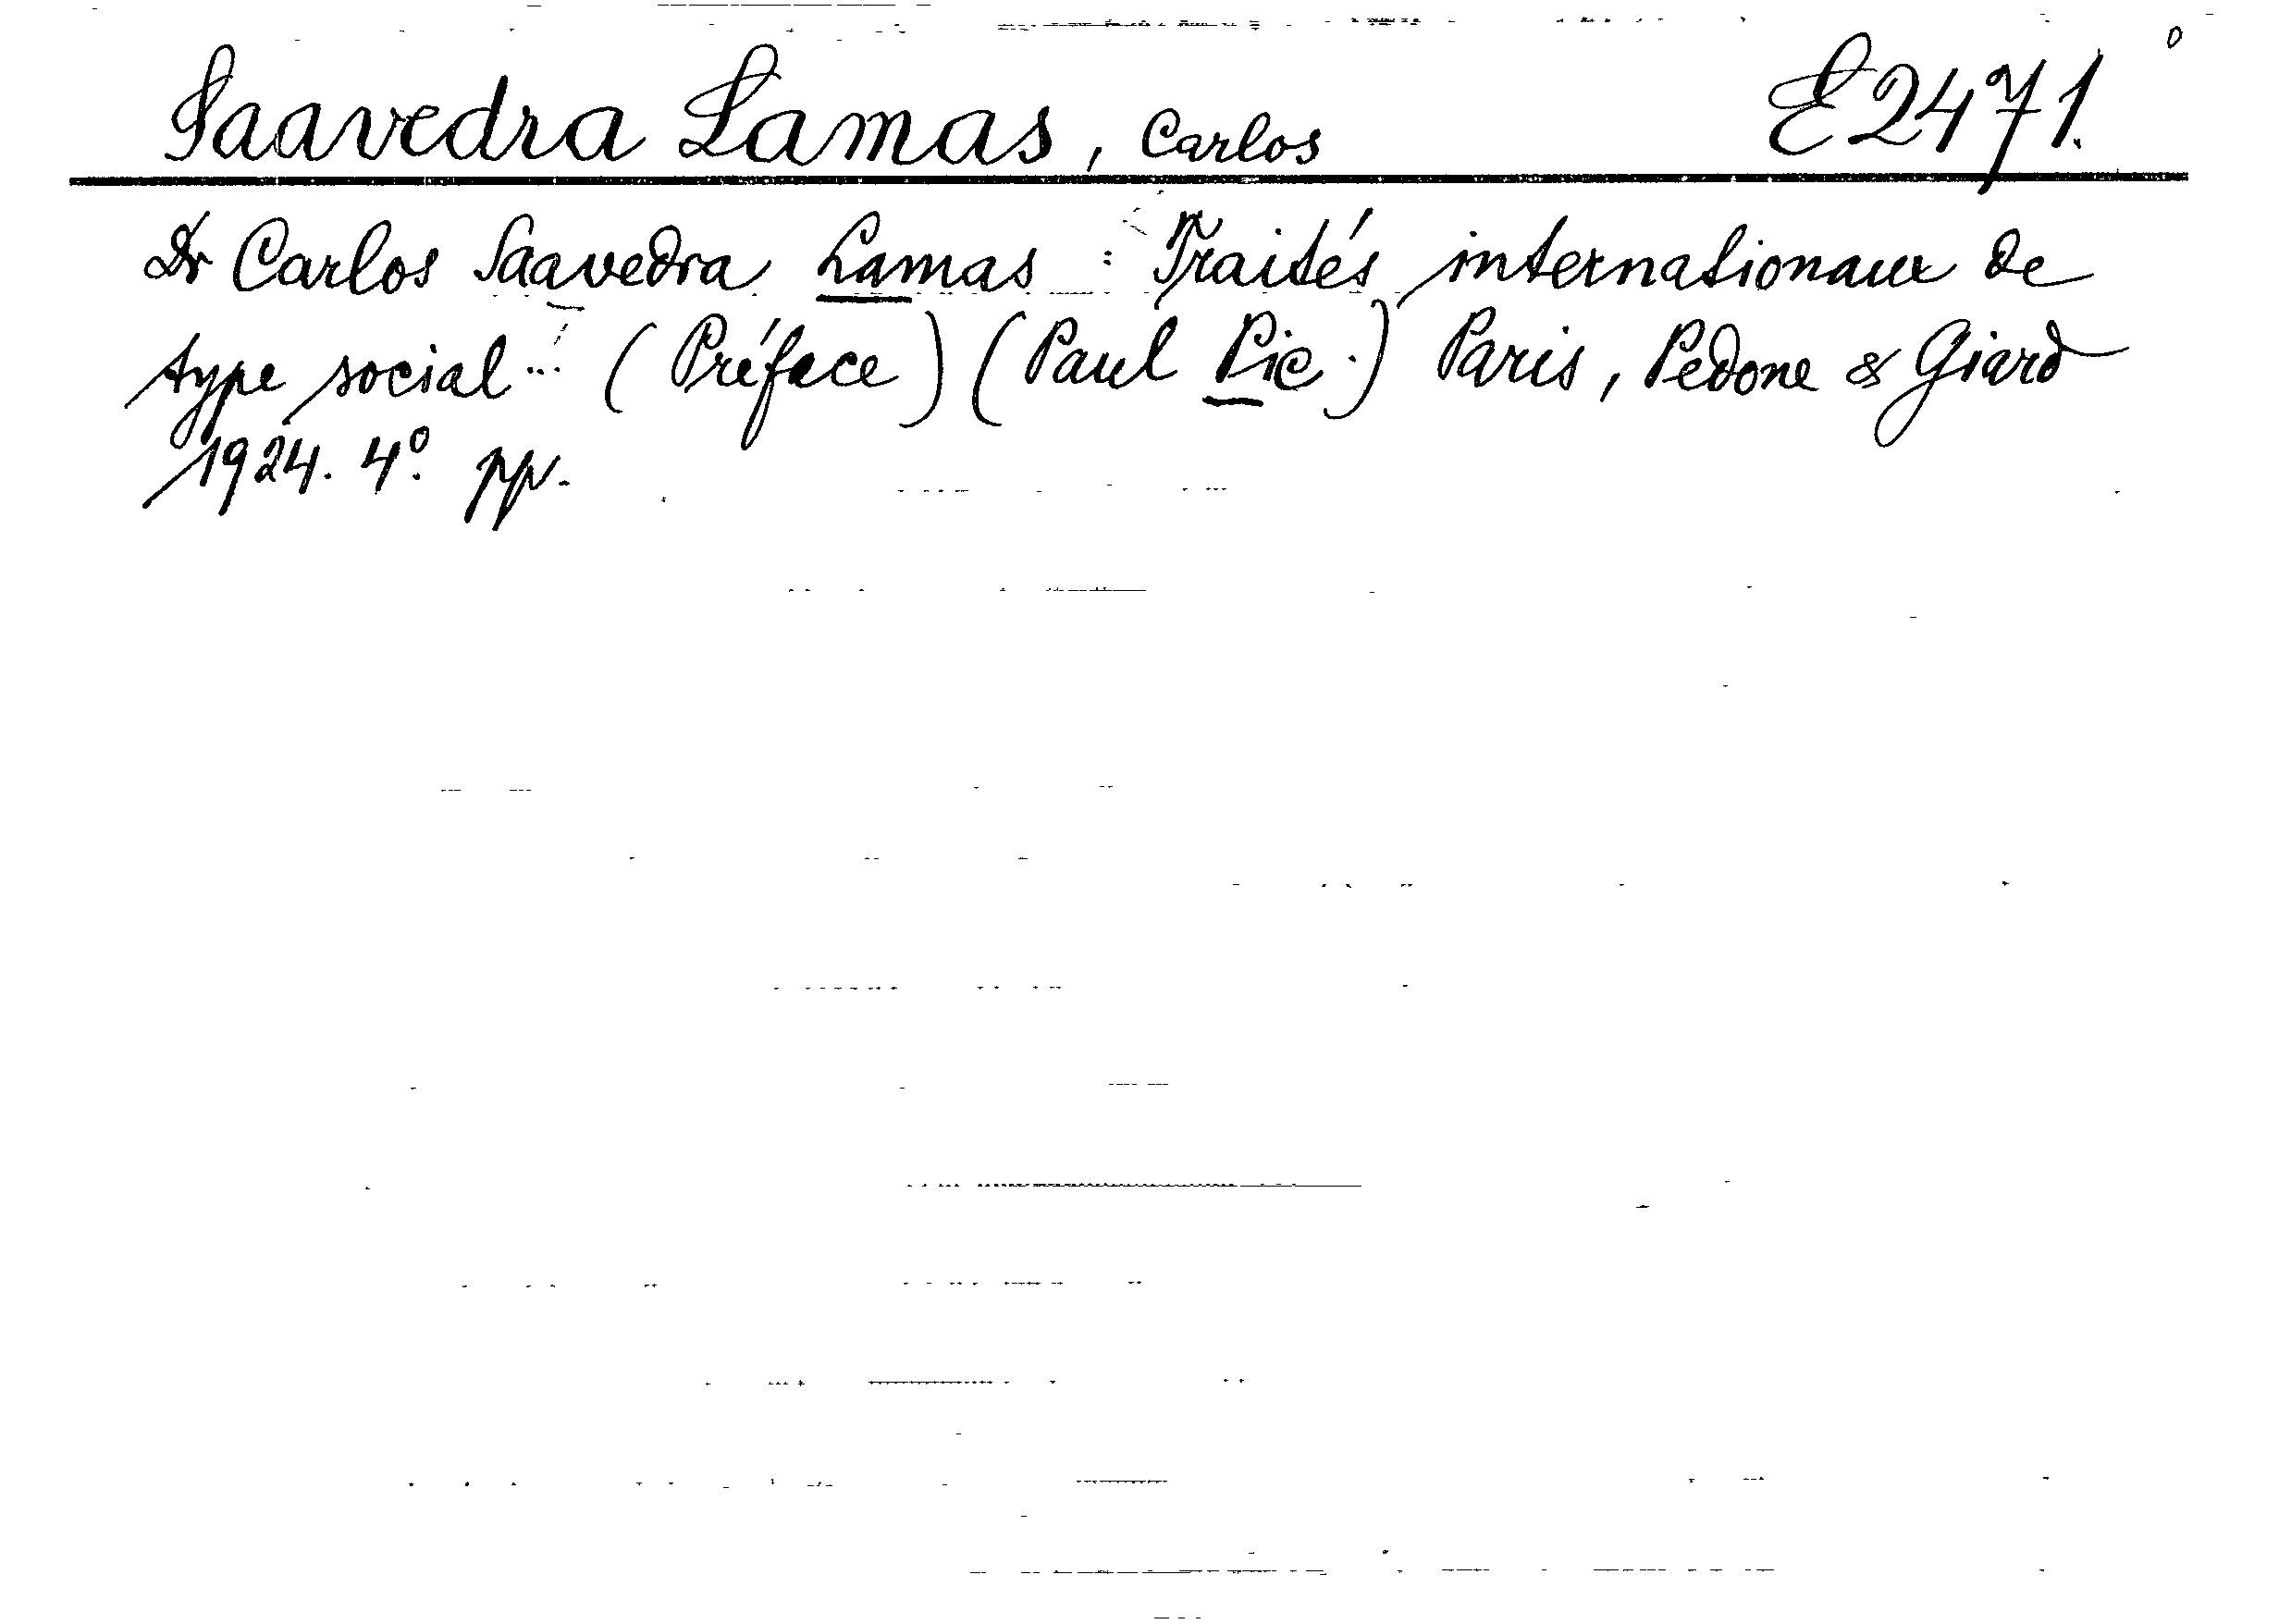 Saavedra Lamas, Carlos E2471.
Dr Carlos Saavedra Lamas : Traités internationaux de
type social... (Préface) (Paul Pic.) Paris, Pedone & Giard
1924. 4º. pp.